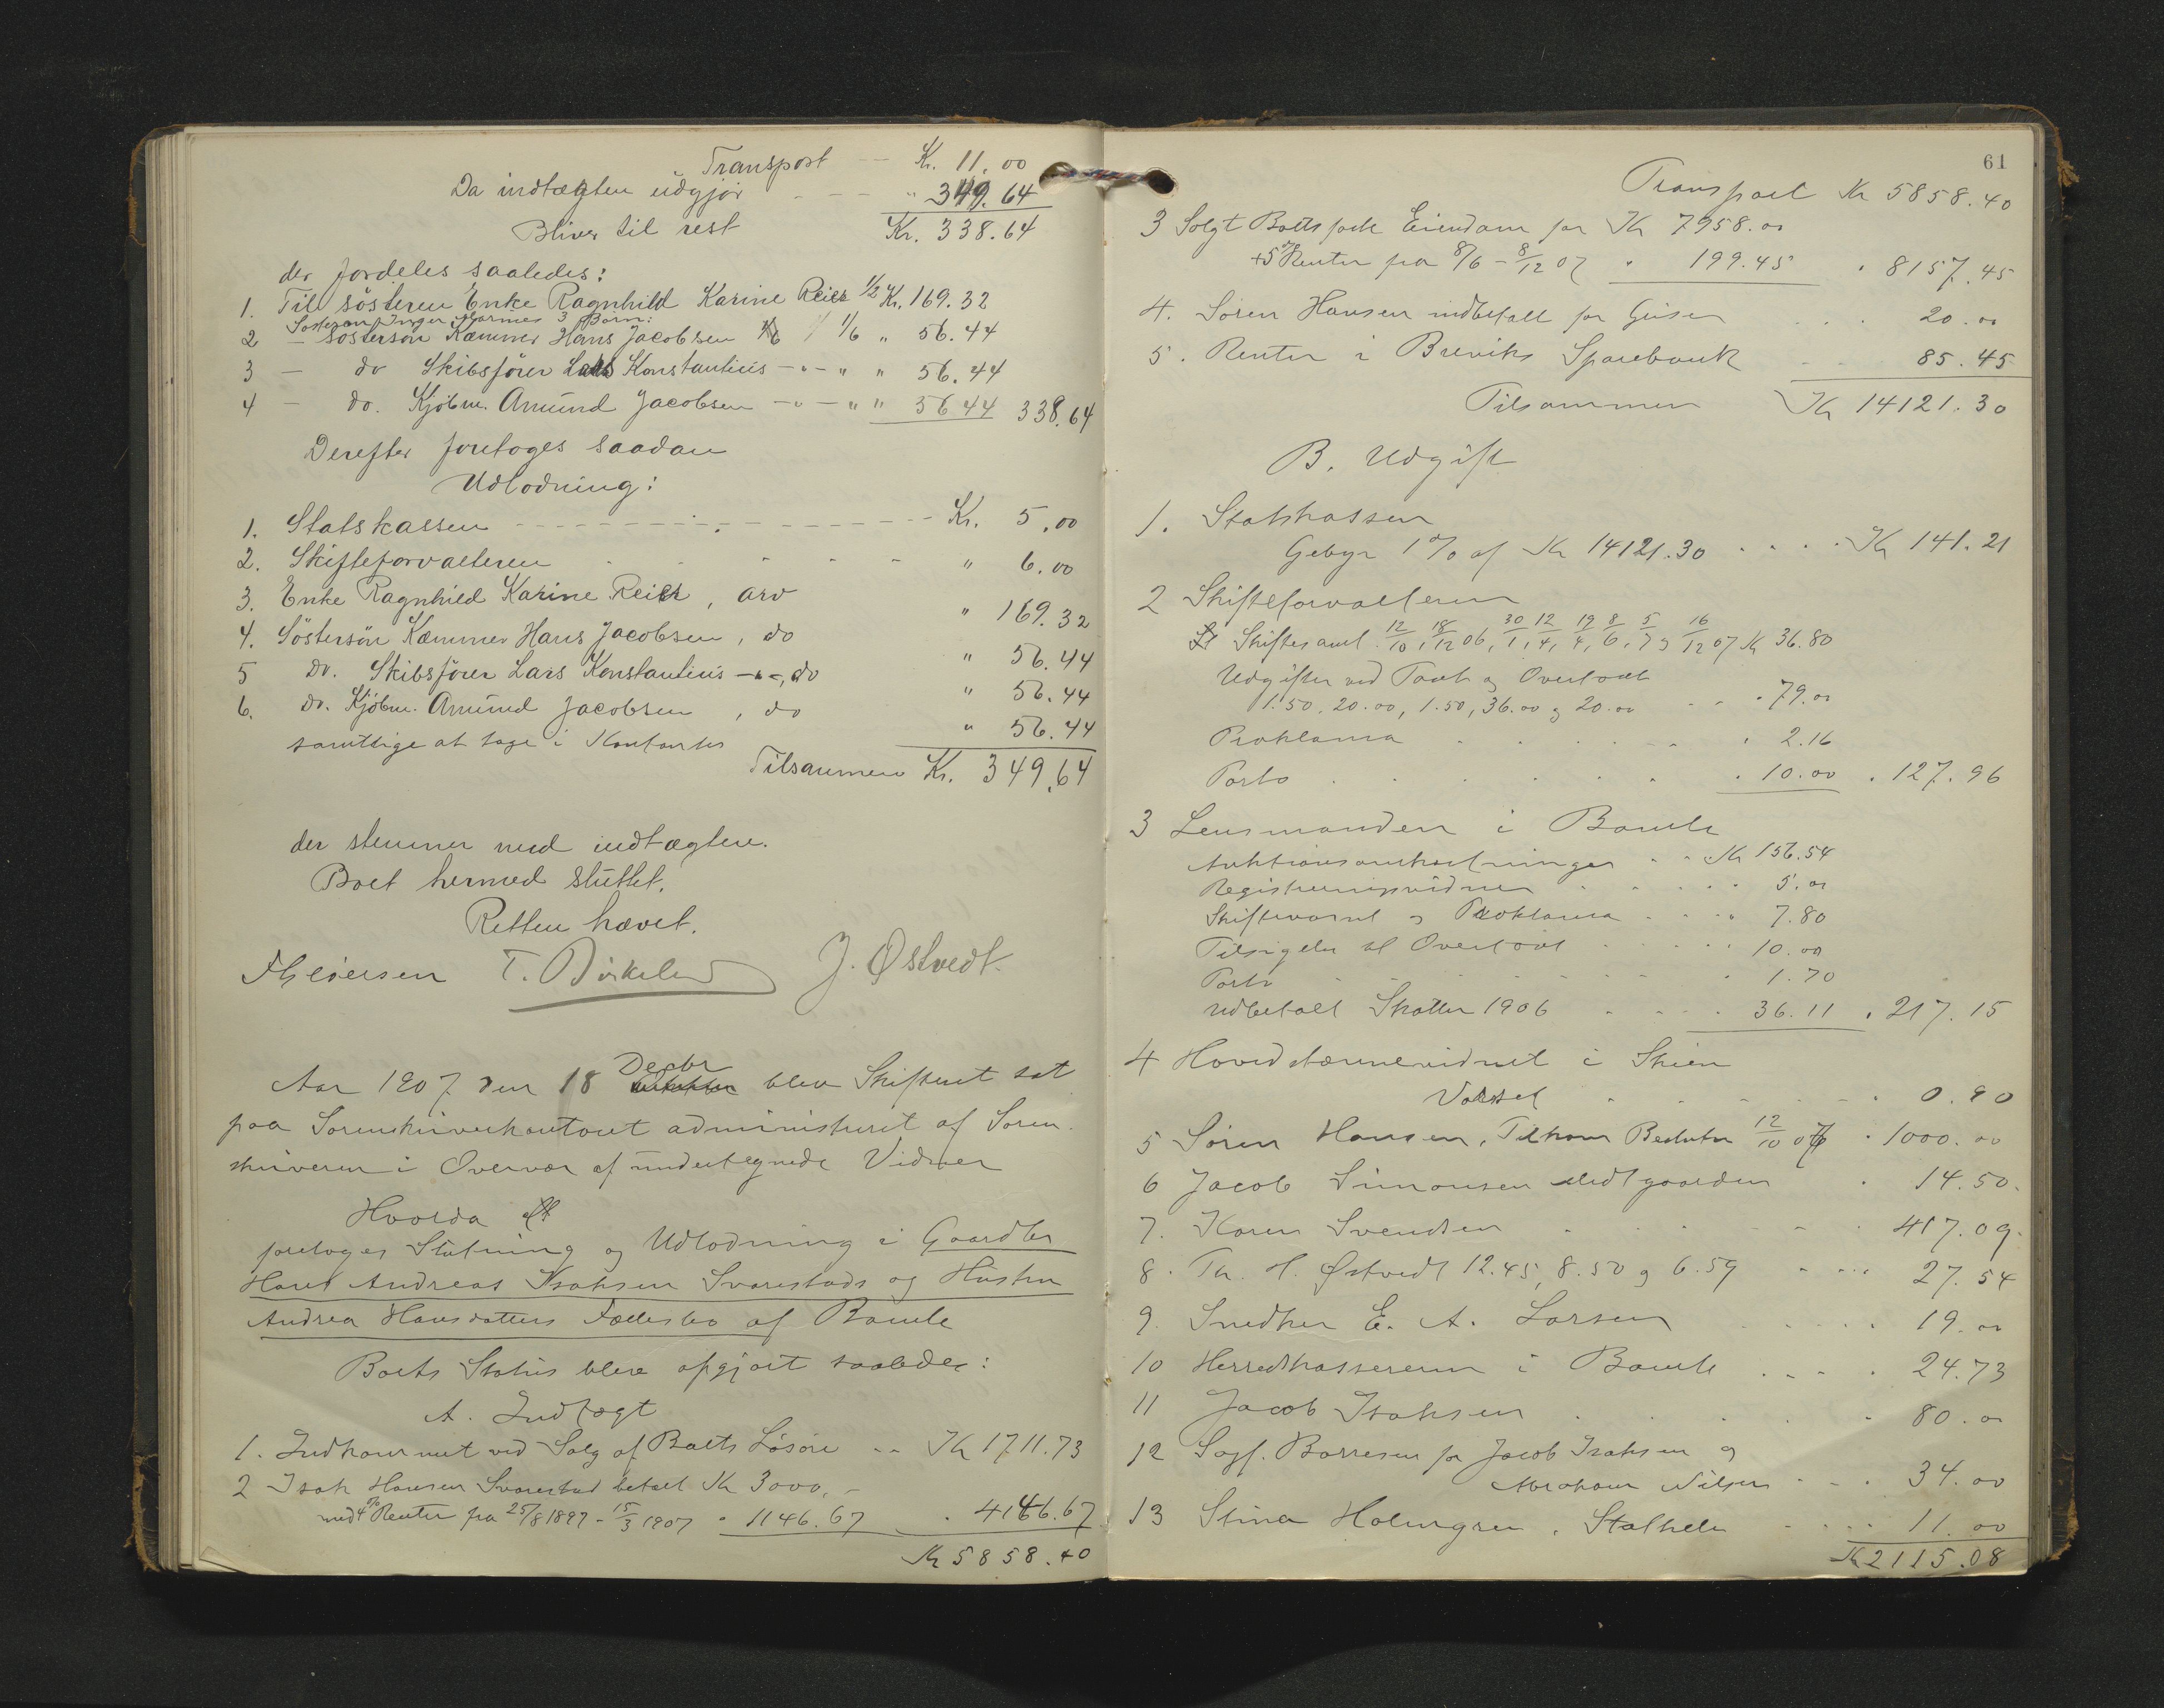 Transport — Kr. 11.00
Da indtægten udgjør - - - " 349.64
Bliver til rest Kr. 338.64
der fordeles saaledes:
1. Til søsteren Enke Ragnhild Karine Reier 1/2 Kr. 169.32
Søsteren Inger Marines 3 Børn:
2 — søstersøn Kæmner Hans Jacobsen 1/6 " 56.44
3 — do Skibsfører Lars Konstantius -"- " " 56.44
4 — do. Kjøbm. Amund Jacobsen -"- " " 56.44 338.64
Derefter foretoges saadan
Udlodning:
1. Statskassen - - - Kr. 5.00
2. Skifteforvalteren - - - " 6.00
3. Enke Ragnhild Karine Reier, arv " 169.32
4. Søstersøn Kæmner Hans Jacobsen, do " 56.44
5 do. Skibsfører Lars Konstantius -"-, do " 56.44
6. do. Kjøbm. Amund Jacobsen, do " 56.44
samtlige at tage i Kontanter
Tilsammen Kr. 349.64
der stemmer med indtægten.
Boet hermed sluttet.
Retten hævet.
T. Birkeland J. Østvedt.
Aar 1907 den 18 Decbr blev Skifteret sat
paa Sorenskriverkontoret administreret af Soren-
skriveren i Overvær af undertegnede Vidner
Hvorda
foretoges Slutning og Udlodning i Gaardbr
Hans Andreas Isaksen Svarestads og Hustru
Andrea Hansdatters Fællesbo af Bamle
Boets Status blev opgjort saaledes:
A. Indtægt
1. Indkommet ved Salg af Boets Løsøre -- Kr 1711.73
2 Isak Hansen Svarestad betalt Kr 3000,-
med 4% Renter fra 25/8 1897 - 15/3 1907 " 1146.67 " 4146.67
Kr 5858.40
61
Transport Kr 5858.40
3 Solgt Boets faste Eiendom for Kr 7958.00
+ 5% Renter fra 8/6 - 8/12 07 " 199.45 " 8157.45
4. Søren Hansen indbetalt for Grisen . . . 20.00
5. Renter i Breviks Sparebank - - 85.45
Tilsammen Kr 14121.30
B. Udgift
1. Statskassen
Gebyr 1% af Kr 14121.30 . . . . Kr 141.21
2 Skifteforvalteren
Skiftesaml. 12/10, 18/12 06, 30/1, 12/4, 19/4, 8/6, 5/7 og 16/12 07 Kr 36.80
Udgifter ved Taxt og Overtaxt
1.50, 20.00, 1.50, 36.00 og 20.00 - - " 79.00
Proklama . . . . . " 2.16
Porto . . . . . . " 10.00 " 127.96
3 Lensmanden i Bamle
Auktionsomkostninger . . Kr 156.54
Registreringsvidner . . . . 5.00
Skiftevarsel og Proklama . . . . 7.80
Tilsigelse til Overtaxt . . . . 10.00
Porto . . . . . . 1.70
Udbetalt Skatter 1906 . . . . 36.11 " 217.15
4 Hovedstævnevidnet i Skien
Varsel . . . . . . 0.90
5 Søren Hansen, Beslutn 12/10 07 " 1000.00
6 Jacob Simonsen Midtgaarden . 14.50.
7. Karen Svendsen . . . . . 417.09.
8. Th. H. Østvedt 12.45, 8.50 og 6.59 . . . 27.54
9. Snedker E. A. Larsen . . . . . 19.00
10 Herredskassereren i Bamle . . . . 24.73
11 Jacob Isaksen . . . . . 80.00
12 Sagf. Borresen for Jacob Isaksen og
Abraham Nilsen . . . 34.00
13 Stina Holmgren, Stathelle . . . . 11.00
Kr 2115.08